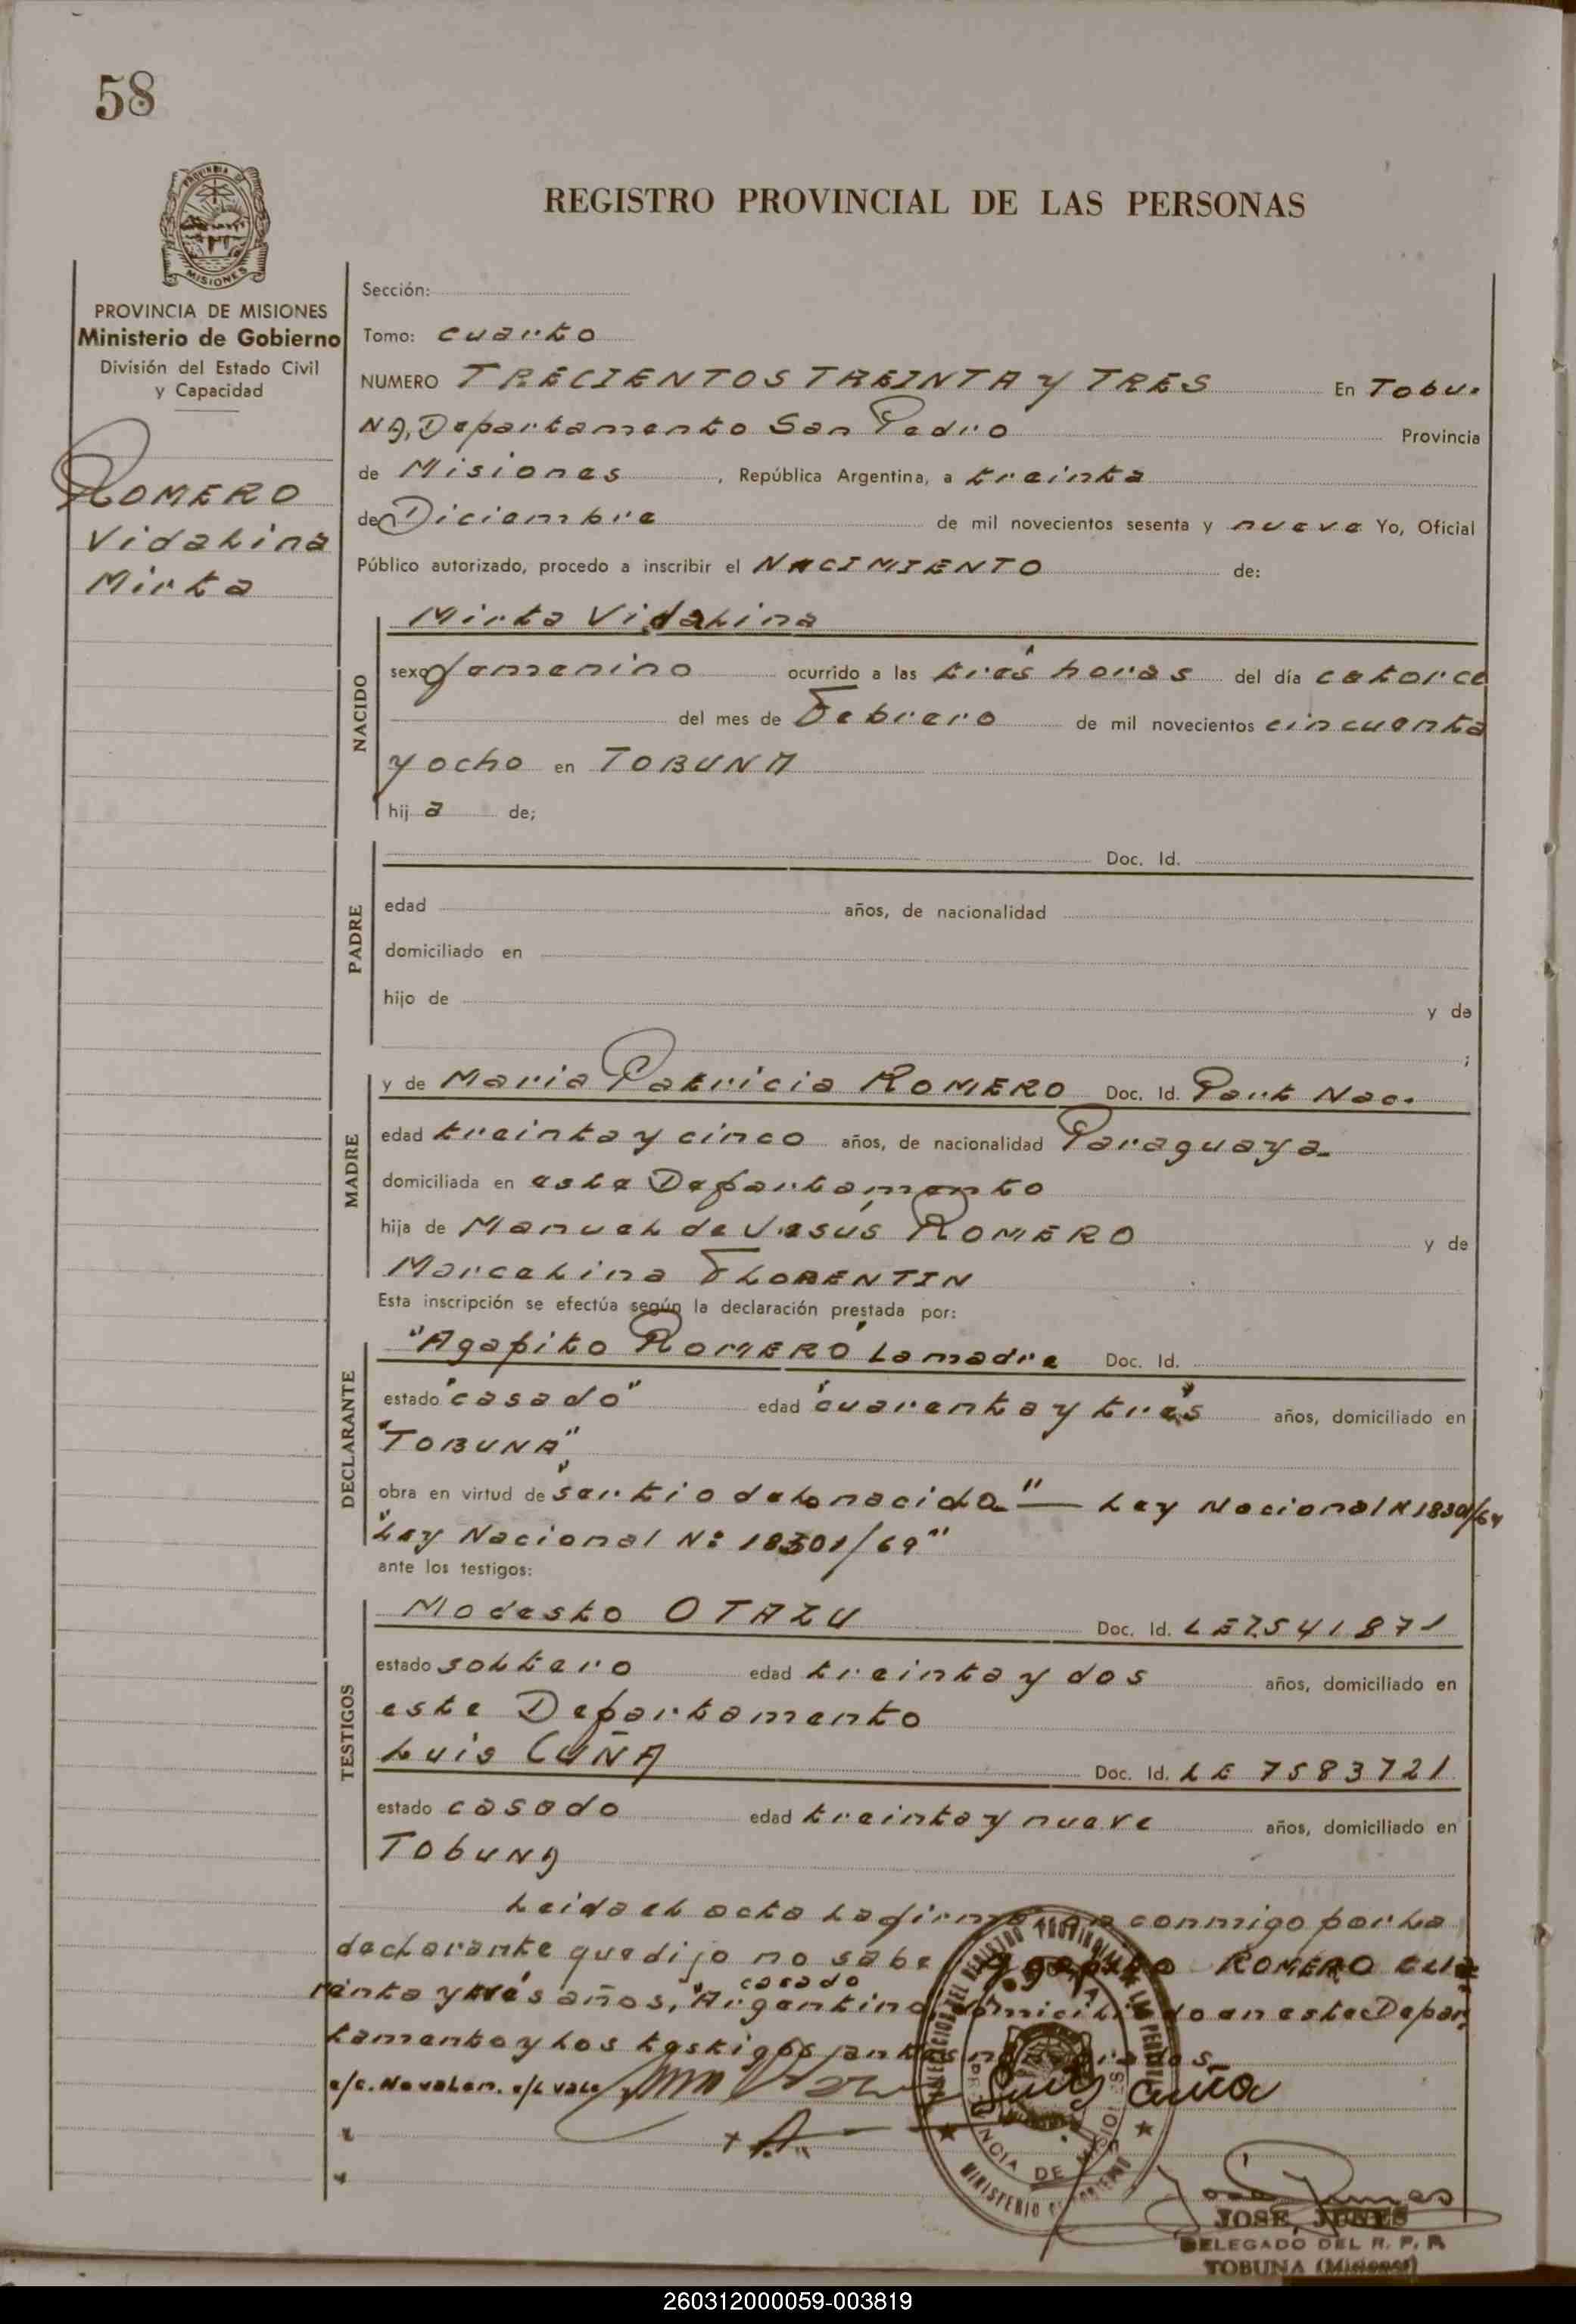 58
REGISTRO PROVINCIAL DE LAS PERSONAS
PROVINCIA DE MISIONES
MISIONES
PROVINCIA DE MISIONES
Ministerio de Gobierno
División del Estado Civil
y Capacidad
ROMERO
Vidalina
Mirta
Sección:
Tomo: cuarto
NUMERO TRECIENTOS TREINTA y TRES En Tobu-
NA, Departamento San Pedro Provincia
de Misiones, República Argentina, a treinta
de Diciembre de mil novecientos sesenta y nueve Yo, Oficial
Público autorizado, procedo a inscribir el NACIMIENTO de:
NACIDO
Mirta Vidalina
sexo femenino ocurrido a las tres horas del día catorce
del mes de Febrero de mil novecientos cincuenta
y ocho en TOBUNA
hija de;
PADRE
Doc. Id.
edad años, de nacionalidad
domiciliado en
hijo de y de
;
MADRE
y de Maria Patricia ROMERO Doc. Id. Part Nac.
edad treinta y cinco años, de nacionalidad Paraguaya
domiciliada en este Departamento
hija de Manuel de Jesús ROMERO y de
Marcelina FLORENTIN
Esta inscripción se efectúa según la declaración prestada por:
DECLARANTE
"Agapito ROMERO" La madre Doc. Id.
estado "casado" edad "cuarenta y tres" años, domiciliado en
"TOBUNA"
obra en virtud de "ser tio de la nacida" — Ley Nacional N 18301/69
"Ley Nacional Nº 18301/69"
ante los testigos:
TESTIGOS
Modesto OTAZU Doc. Id. LE 7541871
estado soltero edad treinta y dos años, domiciliado en
este Departamento
Luis CUÑA Doc. Id. LE 7583721
estado casado edad treinta y nueve años, domiciliado en
Tobuna
Leida el acta la firma conmigo por la
declarante que dijo no sabe Agapito ROMERO cua
renta y tres años, "Argentino casado domiciliado en este Depar
tamento y los testigos antes
e/c. No valen. e/l vale
Luis Cuña
MINISTERIO DE GOBIERNO
PROVINCIA DE MISIONES
Jose Junes
JOSE JUNES
DELEGADO DEL R. P. P.
TOBUNA (Misiones)
260312000059-003819